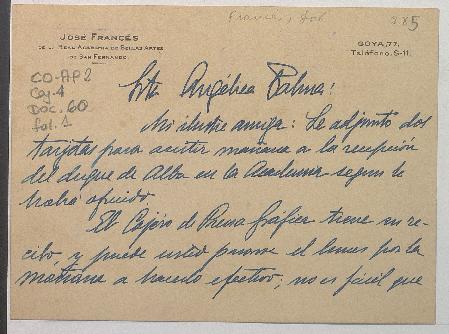 Francés, José
225
JOSÉ FRANCÉS
DE LA REAL ACADEMIA DE BELLAS ARTES
DE SAN FERNANDO
GOYA, 77.
Teléfono, S-11.
CO-AP2
Cj-4
Doc. 60
fol. 1
Srta Angélica Palma:
Mi ilustre amiga: Le adjunto dos
tarjetas para asistir mañana a la recepción
del duque de Alba en la Academia segun le
había ofrecido.
El Cajero de Prensa Gráfica tiene su re-
cibo, y puede usted pasarse el lunes por la
mañana a hacerlo efectivo; no es fácil que